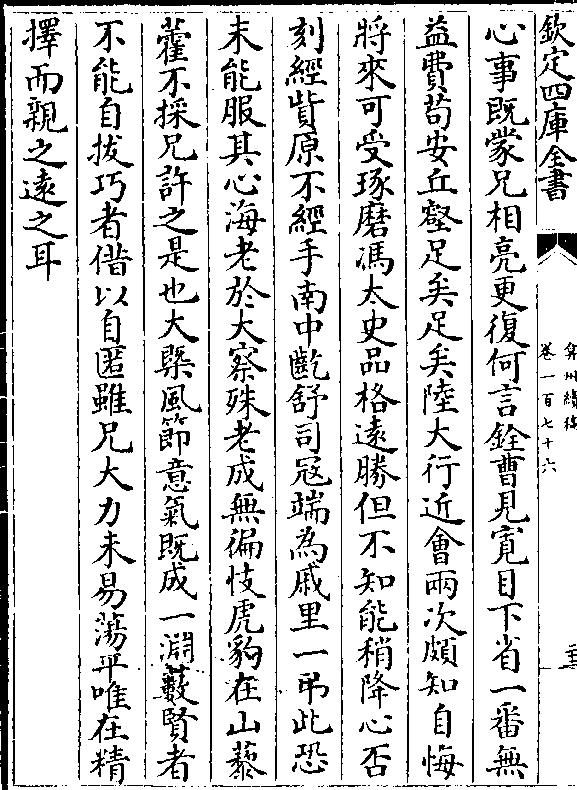 欽定四庫全書
弇州續稿
卷一百七十六
心事既蒙兄相亮更復何言銓曹見寛目下省一番無
益費苟安丘壑足矣足矣陸大行近會兩次頗知自悔
將來可受琢磨馮太史品格遠勝但不知能稍降心否
刻經貲原不經手南中齕舒司冦端為戚里一帋此恐
未能服其心海老於大察殊老成無徧忮虎豹在山藜
藿不採兄許之是也大槩風節意氣既成一淵藪賢者
不能自拔巧者借以自匿雖兄大力未易蕩平唯在精
擇而親之遠之耳